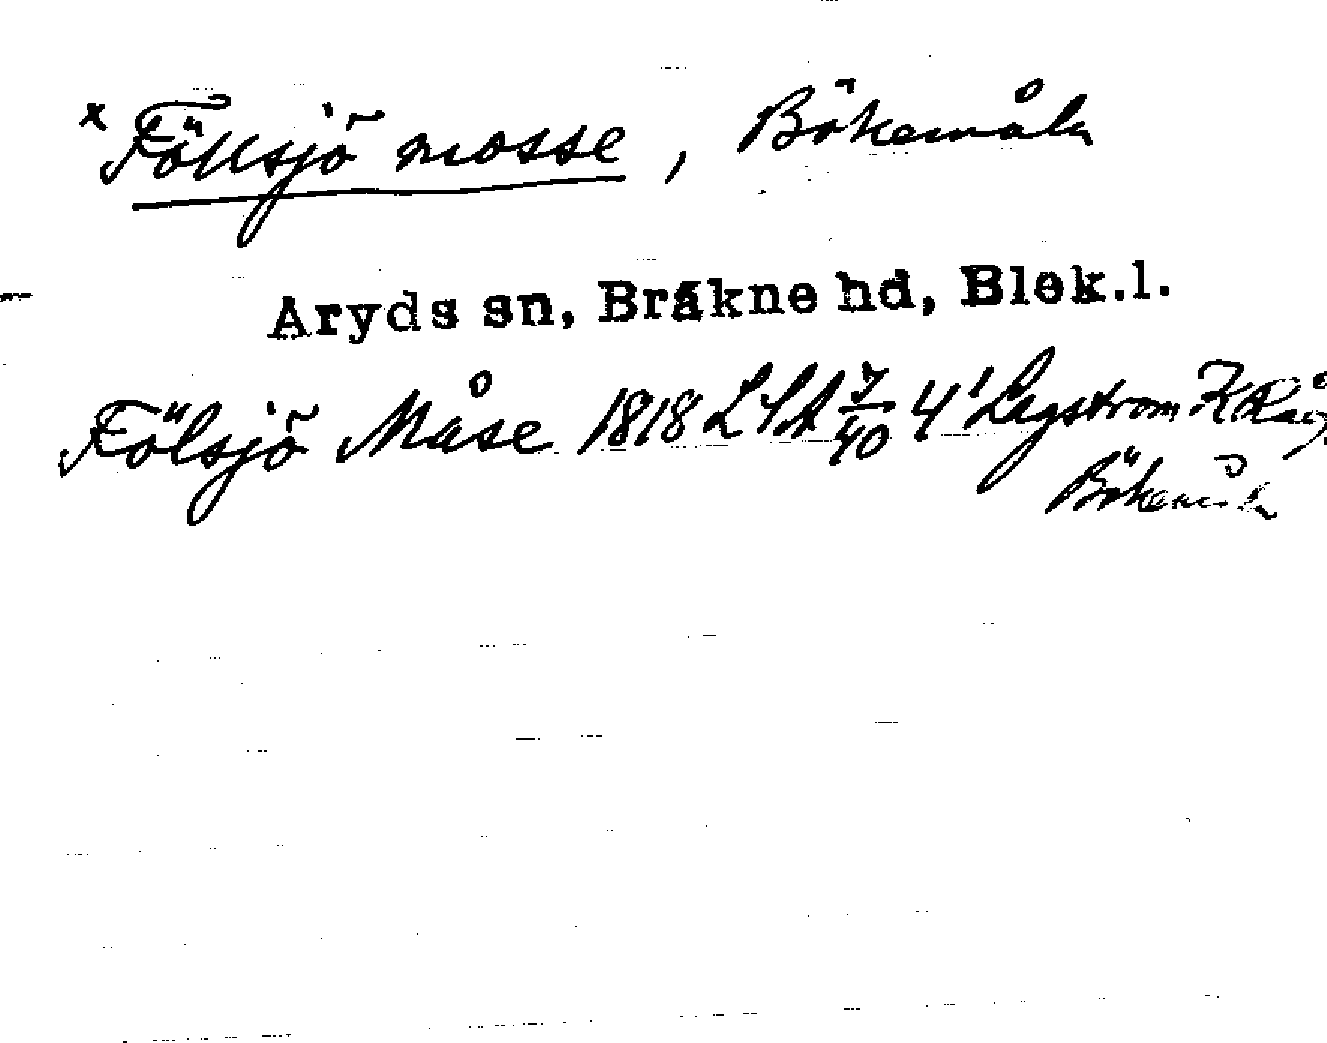 x Föllsjö mosse, Bökemåla
Aryds sn, Bräkne hd, Blek.l.
Fölsjö Måse 1818 LSA 7/40 4' Lagstrom
Bökemåla